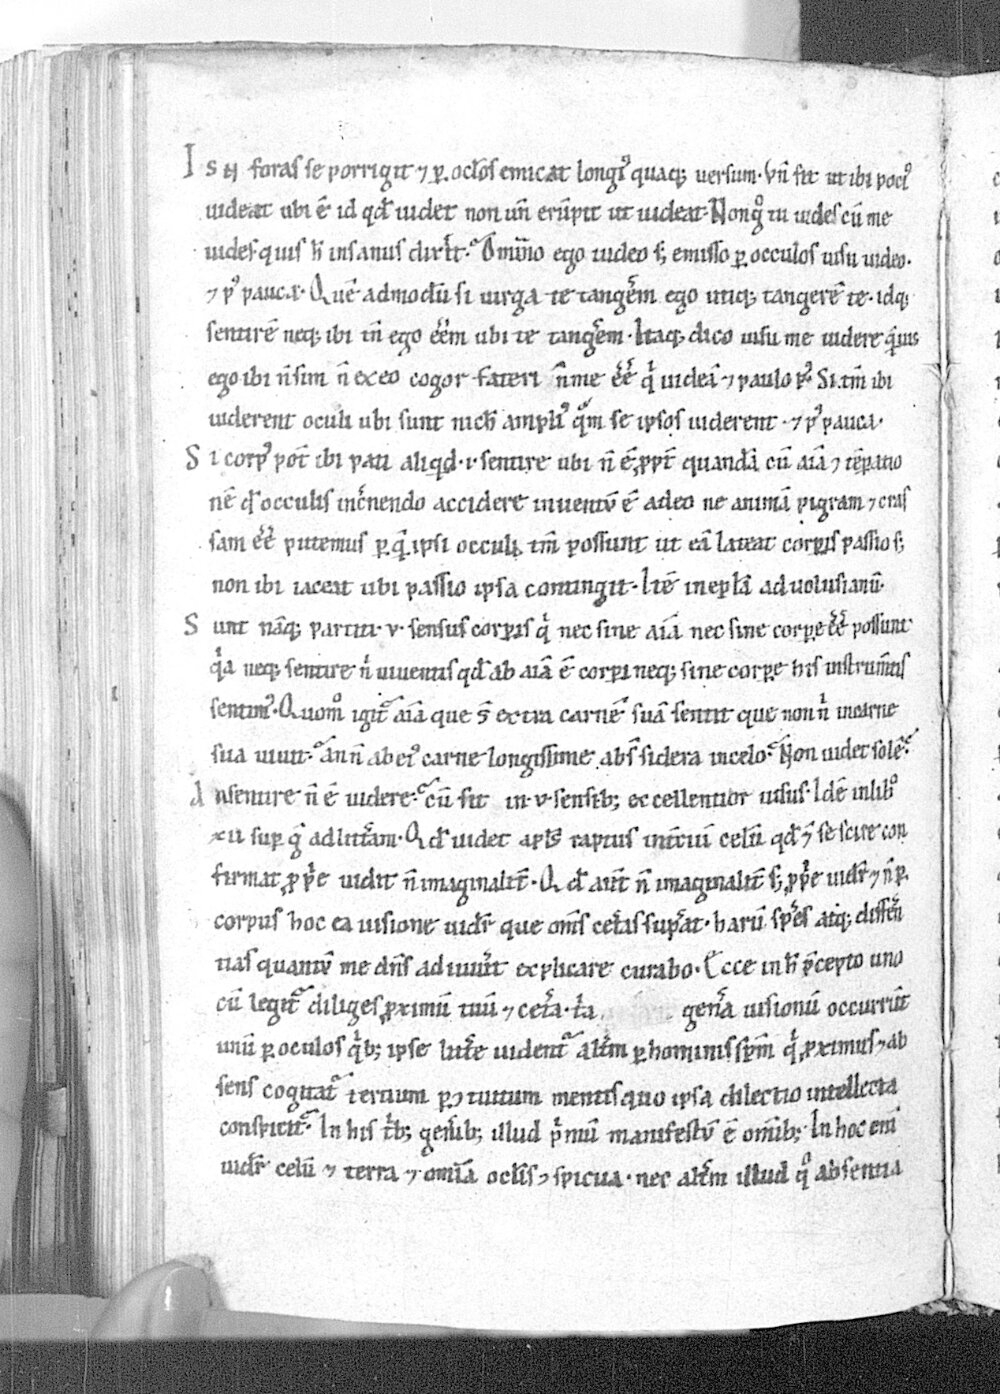 Is ẜ foras se porrigit ⁊ ꝑ oclōs emicat longiꝰ quaqꝫ uersum. Vñ fit ut ibi pociꝰ
uideat ubi ē id qđ uidet non uñ erūpit ut uideat. Nonqͦ tu uides cū me
uides. quis h̄ insanus dixit. Omnino ego uideo sꝫ emisso ꝑ occulos uisu uideo.
⁊ pꝰ pauca. Quē admodū si uirga te tangerem ego utiqꝫ tangerē te. idqꝫ
sentirē neqꝫ ibi tñ ego eēm ubi te tangerem. Itaqꝫ dico uisu me uidere qͣmuis
ego ibi ñ sim ñ exeo cogor fateri ñ me eē qͥ uideā ⁊ paulo pꝰ. Si tm̄ ibi
uiderent oculi ubi sunt nich̄ ampliꝰ qͣm se ipsos uiderent. ⁊ pꝰ pauca.
Si corpꝰ pot̄ ibi pati aliqđ .i. sentire ubi ñ ē. ꝓpt̄ quandā cū aīa ⁊ tēꝑatio
nē qđ occulis inct̄nendo accidere inuentū ē adeo ne animā pigram ⁊ cras
sam eē putemus ꝑ qͣ ipsi occuli tm̄ possunt ut eā lateat corꝑis passio sꝫ
non ibi iaceat ubi passio ipsa contingit. Itē in epła ad uolusianū.
Sunt nāqꝫ partiti .v. sensus corꝑis qͥ nec sine aīa nec sine corꝑe eē possunt
qͥa neqꝫ sentire ñ uiuentis qđ ab aīa ē corꝑi neqꝫ sine corꝑe his instrum̄tis
sentimꝰ. Quomͦ igit̄ aīa que s̄ extra carnē suā sentit que non ñ in carne
sua uiuit. an ñ ab eiꝰ carne longissime abs̄ sidera in celo. Non uidet solē.
An sentire ñ ē uidere. cū sit in .v. sensibꝫ excellentior uisus. Idē in libͦ
xii suꝑ gͣ ad litt̄am. Qđ uidet apl̄s raptus in t̄ciū celū qđ ⁊ se scire con
firmat, ꝓpͥe uidit ñ imaginalit̄. Qđ aut̄ ñ imaginalit̄ sꝫ ꝓpͥe uidet̄ ⁊ ñ ꝑ
corpus hoc ea uisione uidet̄ que om̄s cet̄as suꝑat. harū spēs atqꝫ differ̄
tias quantū me dñs adiuuerit explicare curabo. Ecce in h̄ p̄cepto uno
cū legit̄ diliges ꝓximū tuū ⁊ cet̄a. tͥa gen̄a uisionū occurrūt
unū ꝑ oculos qͥbꝫ ipse litt̄e uident̄ alt̄m ꝑ hominis spm̄ qͥ ꝓximus ⁊ ab
sens cogitat̄ tertium ꝑ ꝯtuitum mentis quo ipsa dilectio intellecta
conspicit̄. In his tͥbꝫ gen̄ibꝫ illud pͥmū manifestū ē om̄ibꝫ. In hoc enī
uidet̄ celū ⁊ terra ⁊ omīa oclis ꝑspicua. nec alt̄m illud qͦ absentia